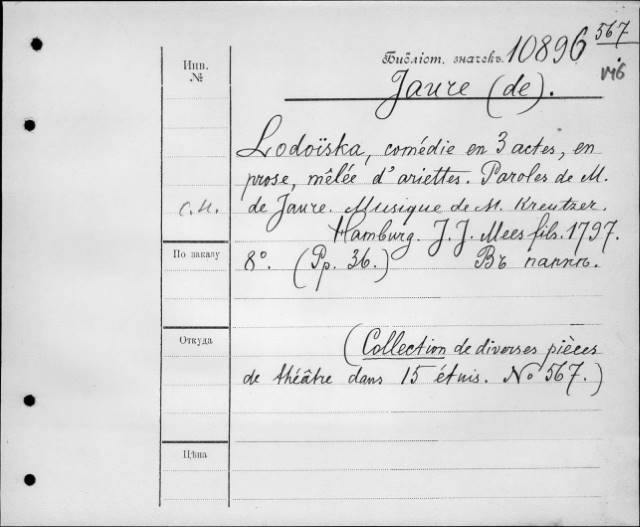 Библіот. значекъ. 10896 567
Инв.
№
V46
Jaure (de).
Lodoïska, comédie en 3 actes, en
prose, mêlée d'ariettes. Paroles de M.
С.Н. de Jaure. Musique de M. Kreutzer.
Hamburg. J. J. Mees fils. 1797.
По заказу 8º. (Pp. 36.) Въ папкѣ.
Откуда
(Collection de diverses pièces
de théâtre dans 15 étuis. № 567.)
Цѣна